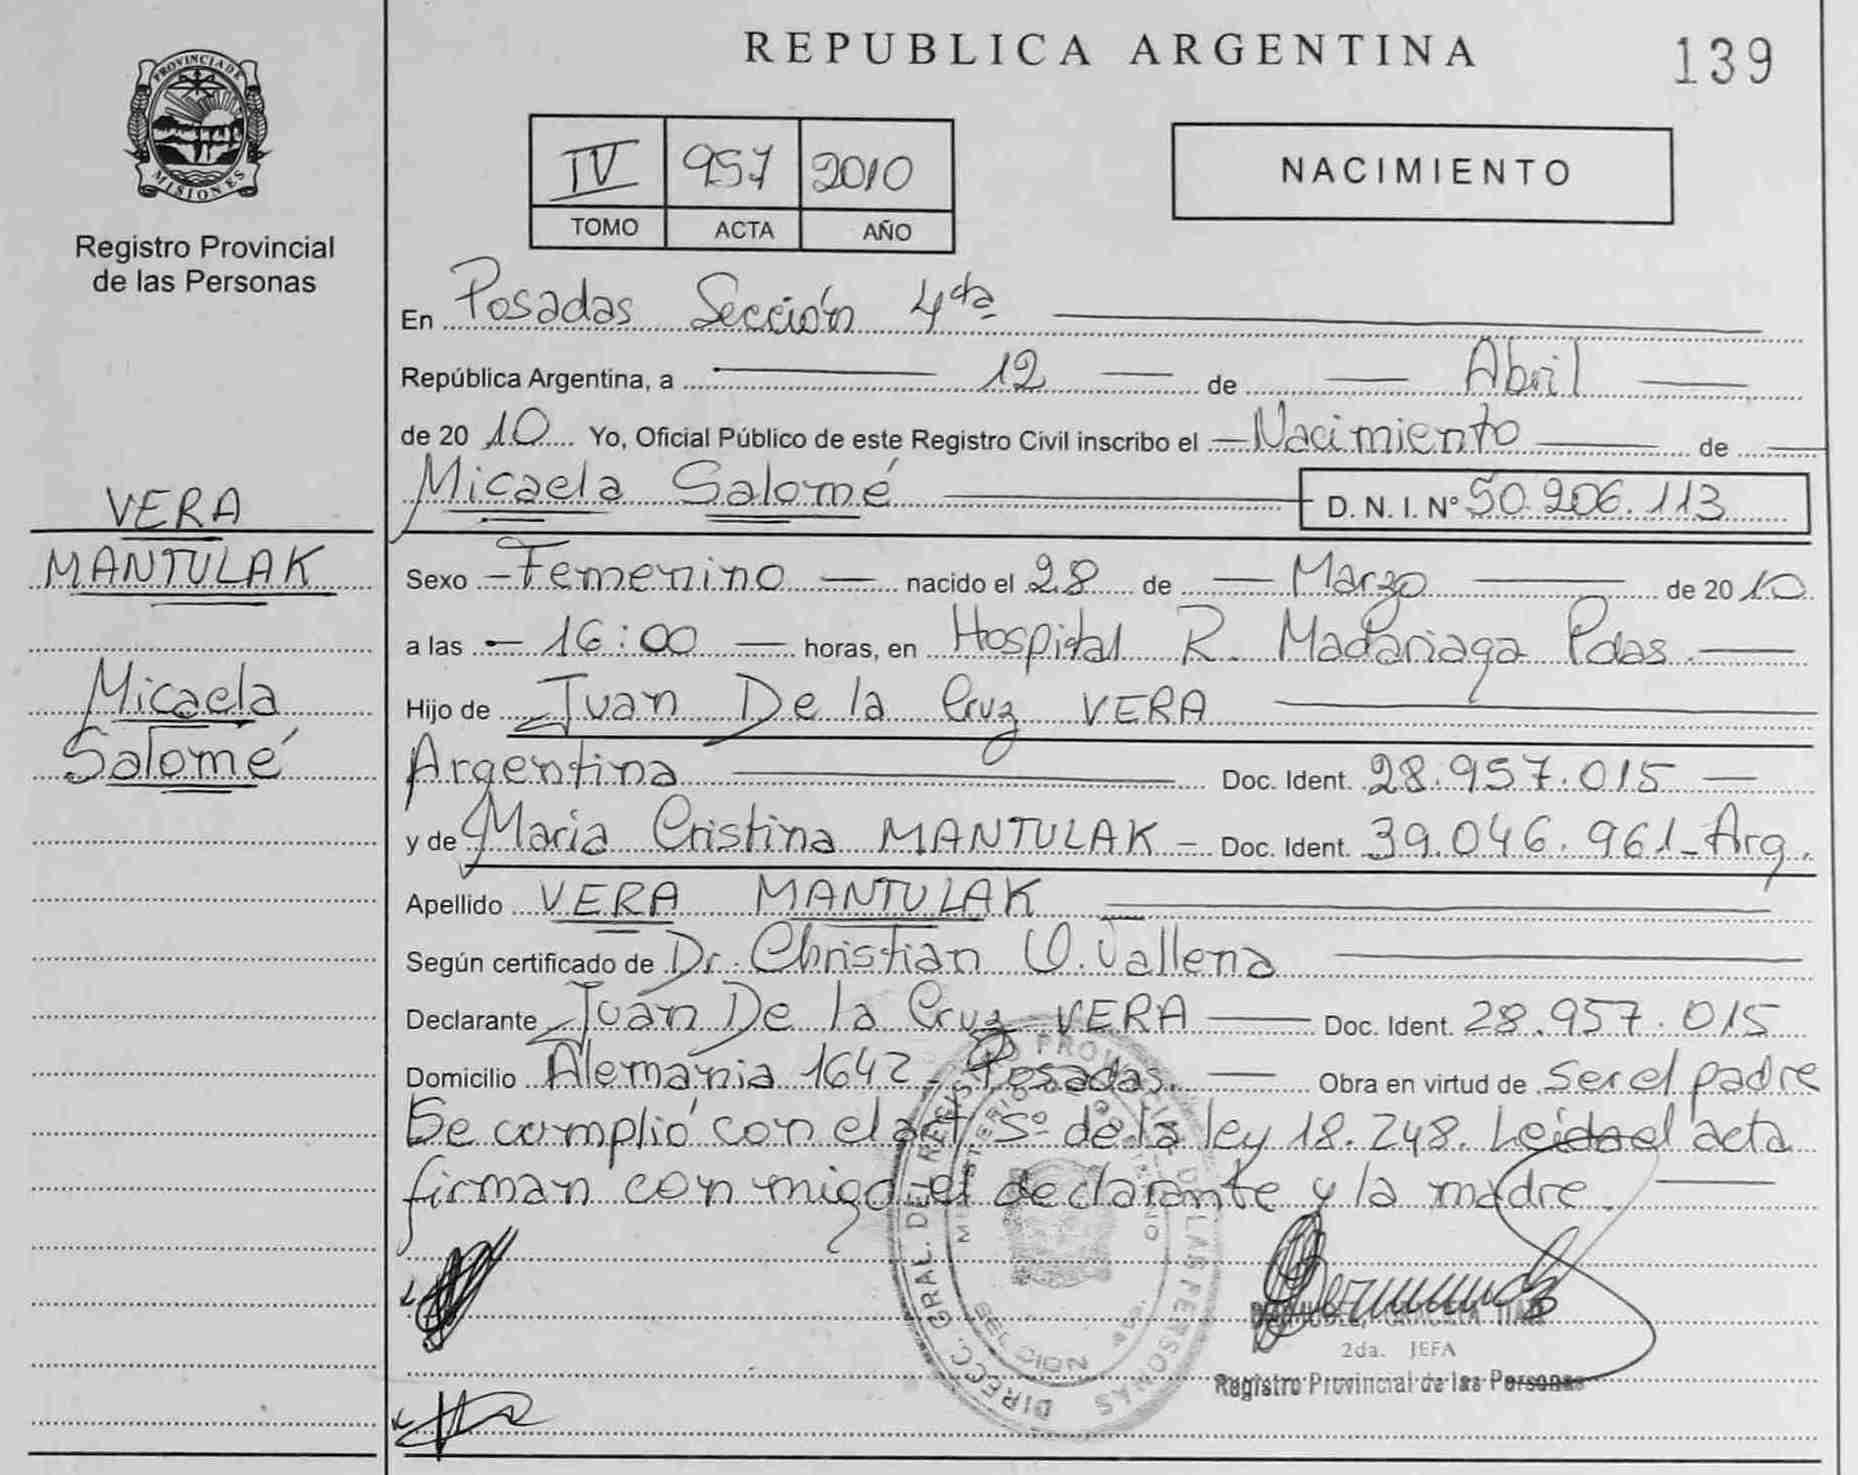 REPUBLICA ARGENTINA
139
PROVINCIA DE
MISIONES
Registro Provincial
de las Personas
IV 957 2010
TOMO ACTA AÑO
NACIMIENTO
En Posadas Sección 4ta
República Argentina, a 12 de Abril
de 2010 Yo, Oficial Público de este Registro Civil inscribo el Nacimiento de
Micaela Salomé D. N. I. Nº 50.206.113
VERA
MANTULAK
Micaela
Salomé
Sexo Femenino nacido el 28 de Marzo de 2010
a las 16:00 horas, en Hospital R. Madariaga Pdas.
Hijo de Juan De la Cruz VERA
Argentina Doc. Ident. 28.957.015
y de Maria Cristina MANTULAK - Doc. Ident. 39.046.961 - Arg.
Apellido VERA MANTULAK
Según certificado de Dr. Christian O. Vallena
Declarante Juan De la Cruz VERA Doc. Ident. 28.957.015
Domicilio Alemania 1642 - Posadas. Obra en virtud de Ser el padre
Se cumplió con el art 5º de la ley 18.248. Leida el acta
firman con migo el declarante y la madre.
DIRECC. GRAL. DEL REGIST. PROVINCIAL DE LAS PERSONAS
2da. JEFA
Registro Provincial de las Personas